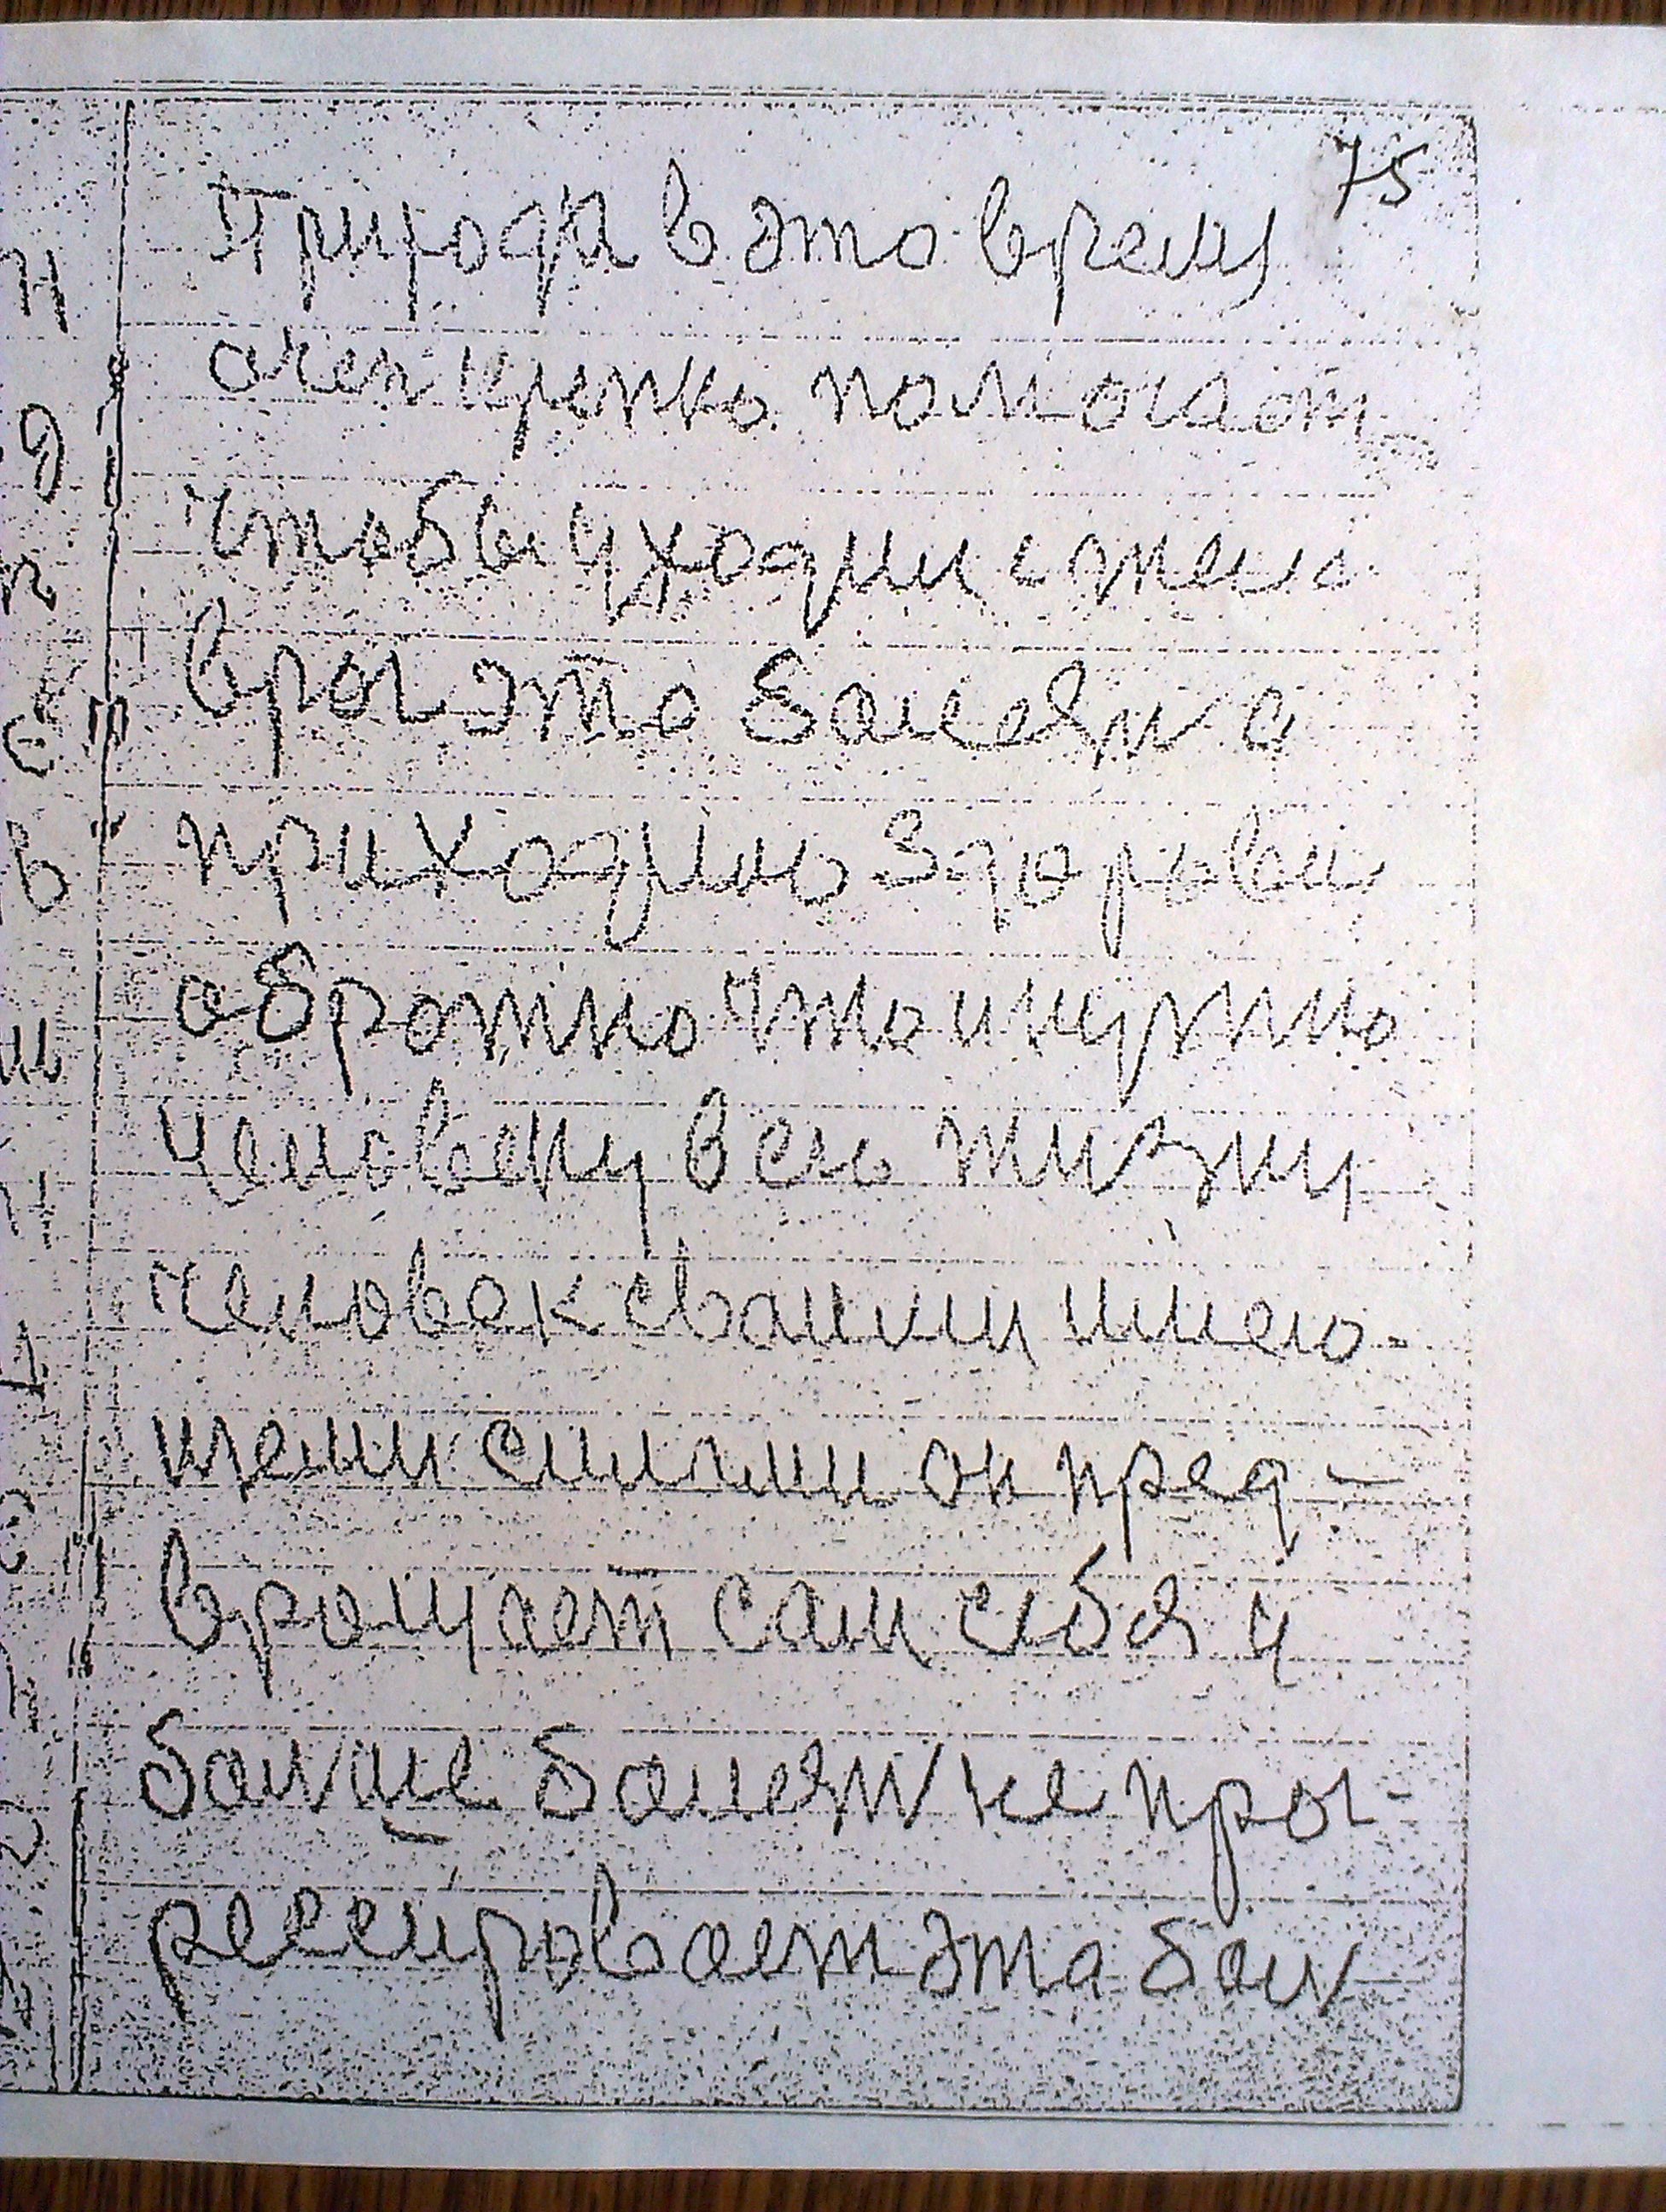 75
Природа в это время
очен крепко помогает
чтобы уходил с тела
враг это болезня а
приходило здоровие
обратно что и нужно
человеку всю жизню
человек своими имею-
щеми силами он пред-
вращает сам себя и
больше болезня не прог-
ресеировает эта бол